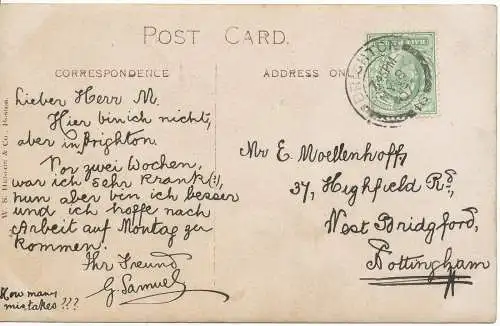 POST CARD.
CORRESPONDENCE
ADDRESS ON
Lieber Herr M.
Hier bin ich nicht,
aber in Brighton.
Vor zwei Wochen,
war ich sehr krank(!),
nun aber bin ich besser
und ich hoffe nach
Arbeit auf Montag zu
kommen.
Ihr Freund
G. Samuel
How many
mistakes???
Mr E. Moellenhoff,
37, Highfield Rd.,
West Bridgford,
Nottingham
BRIGHTON